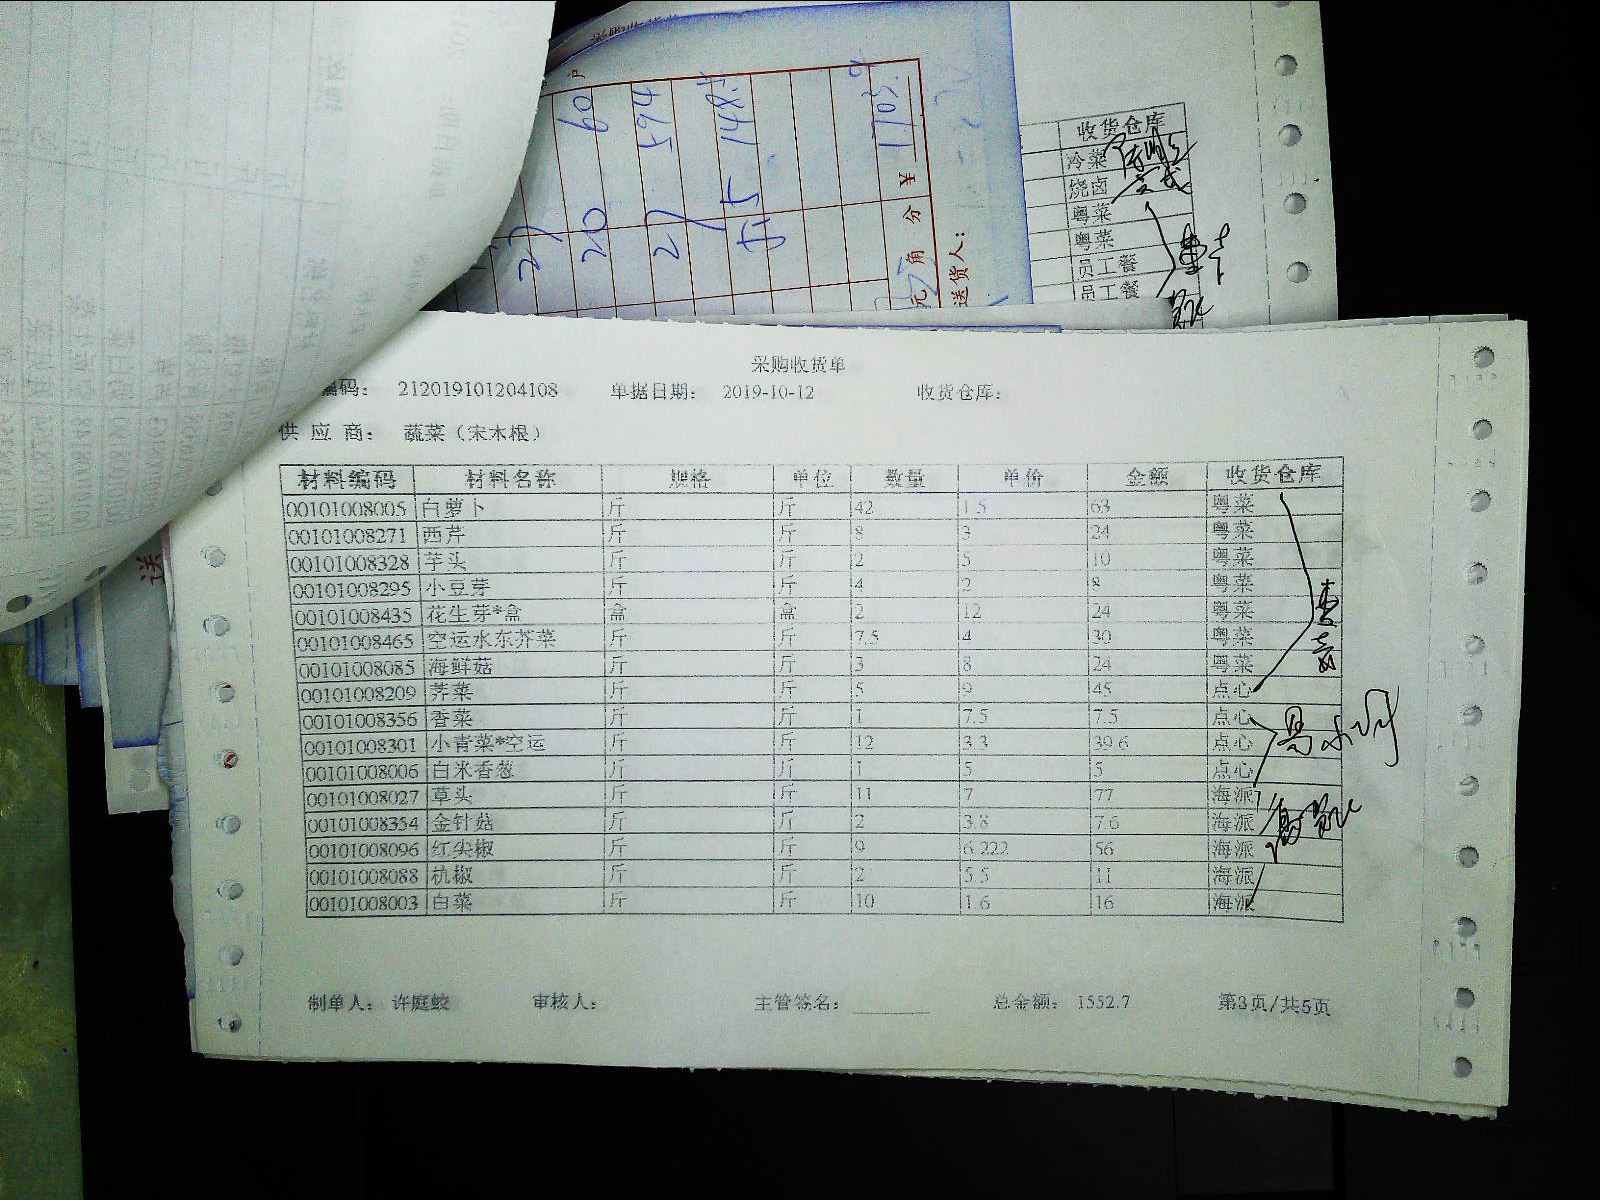 收货仓库
冷菜
烧卤
粤菜
粤菜
员工餐
员工餐
60
594
148.5
27
20
27
5.5
¥
分
角
元
送货人：
送
采购收货单
编码： 212019101204108 单据日期： 2019-10-12 收货仓库：
供 应 商： 蔬菜（宋木根）
材料编码 材料名称 规格 单位 数量 单价 金额 收货仓库
00101008005 白萝卜 斤 斤 42 1.5 63 粤菜
00101008271 西芹 斤 斤 8 3 24 粤菜
00101008328 芋头 斤 斤 2 5 10 粤菜
00101008295 小豆芽 斤 斤 4 2 8 粤菜
00101008435 花生芽*盒 盒 盒 2 12 24 粤菜
00101008465 空运水东芥菜 斤 斤 7.5 4 30 粤菜
00101008085 海鲜菇 斤 斤 3 8 24 粤菜
00101008209 荠菜 斤 斤 5 9 45 点心
00101008356 香菜 斤 斤 1 7.5 7.5 点心
00101008301 小青菜*空运 斤 斤 12 3.3 39.6 点心
00101008006 白米香葱 斤 斤 1 5 5 点心
00101008027 草头 斤 斤 11 7 77 海派
00101008354 金针菇 斤 斤 2 3.8 7.6 海派
00101008096 红尖椒 斤 斤 9 6.222 56 海派
00101008088 杭椒 斤 斤 2 5.5 11 海派
00101008003 白菜 斤 斤 10 1.6 16 海派
制单人： 许庭蛟 审核人： 主管签名： 总金额： 1552.7 第3页/共5页